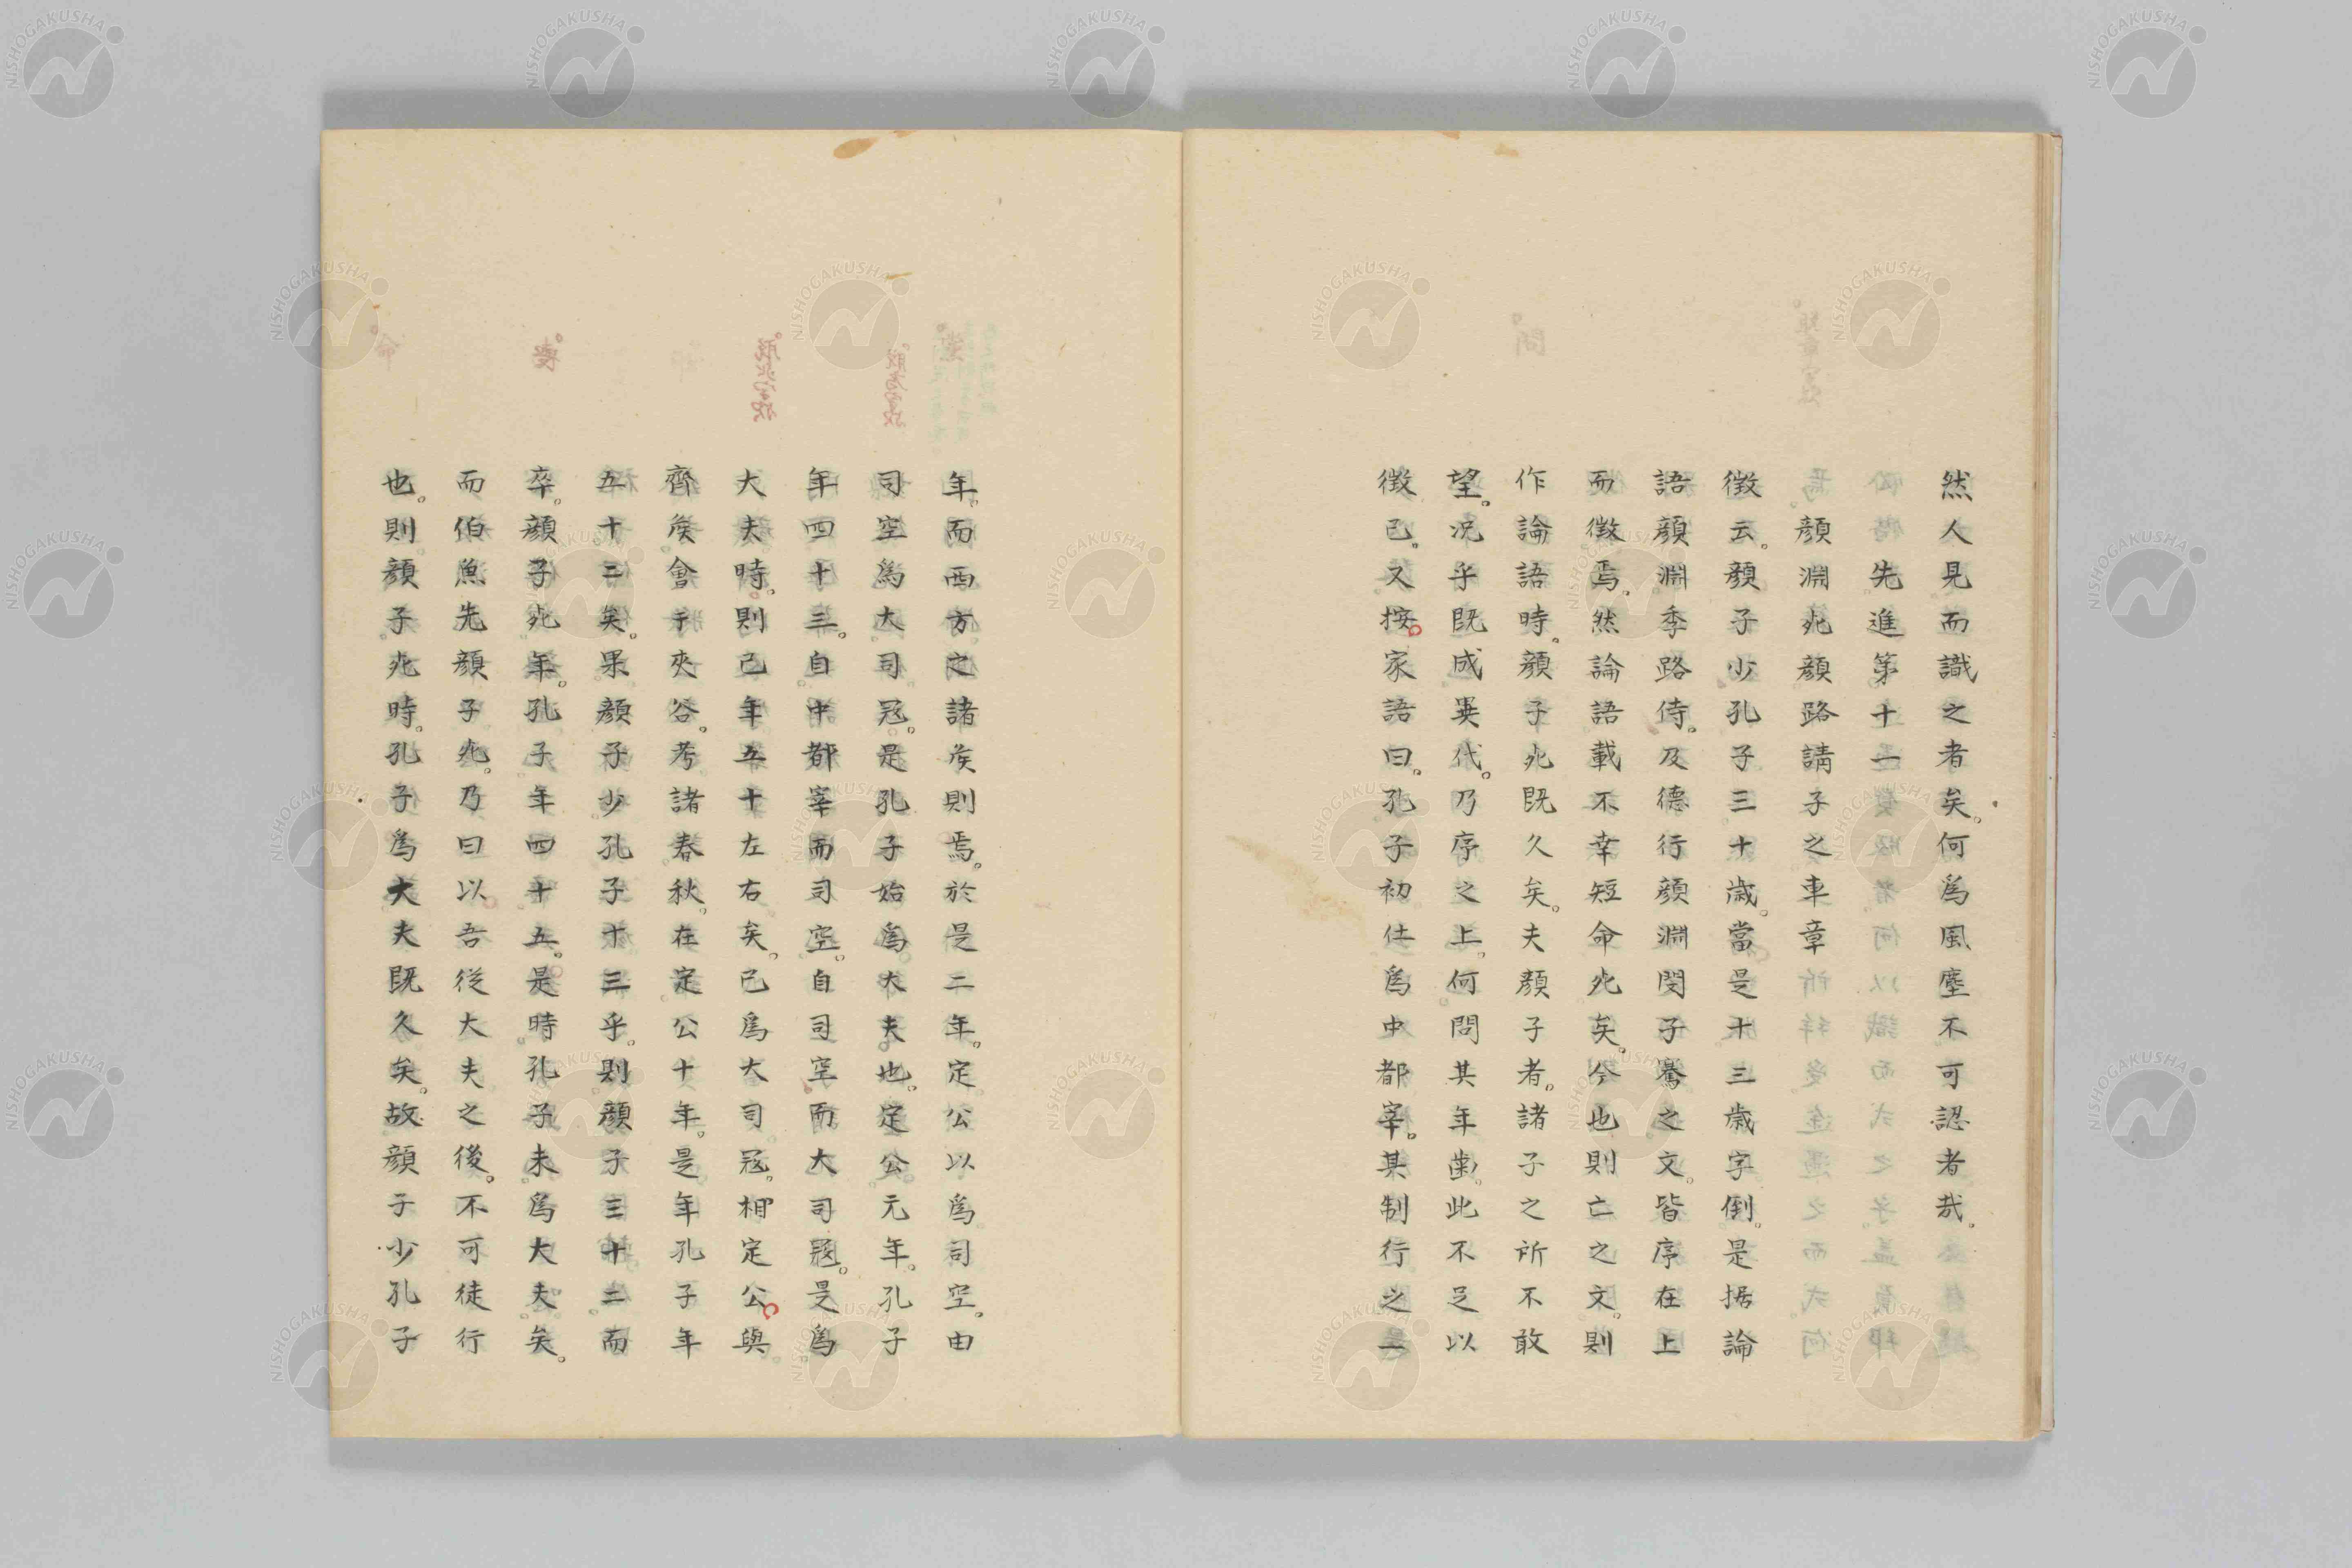 然人見而識之者矣。何爲風塵不可認者哉。
先進第十一
顏淵死顏路請子之車章
徴云。顏子少孔子三十歳。當是十三歳字倒。是据論
語顏淵季路侍。及德行顏淵閔子騫之文。皆序在上
而徴焉。然論語載不幸短命死矣。今也則亡之文。則
作論語時。顏子死既久矣。夫顏子者。諸子之所不敢
望。况乎既成異代。乃序之上。何問其年齒。此不足以
徴已。又按。家語曰。孔子初仕爲中都宰。其制行之一
年。而西方之諸矦則焉。於是二年。定公以爲司空。由
司空爲大司冦。是孔子始爲大夫也。定公元年。孔子
年四十三。自中都宰而司空。自司空而大司冦。是爲
大夫時。則已年五十左右矣。已爲大司冦。相定公。與
齊矦會于夾谷。考諸春秋。在定公十年。是年孔子年
五十二矣。果顏子少孔子十三乎。則顏子三十二而
卒。顏子死年。孔子年四十五。是時孔子未爲大夫矣。
而伯魚先顏子死。乃曰以吾從大夫之後。不可徒行
也。則顏子死時。孔子爲大夫既久矣。故顏子少孔子
NISHOGAKUSHA